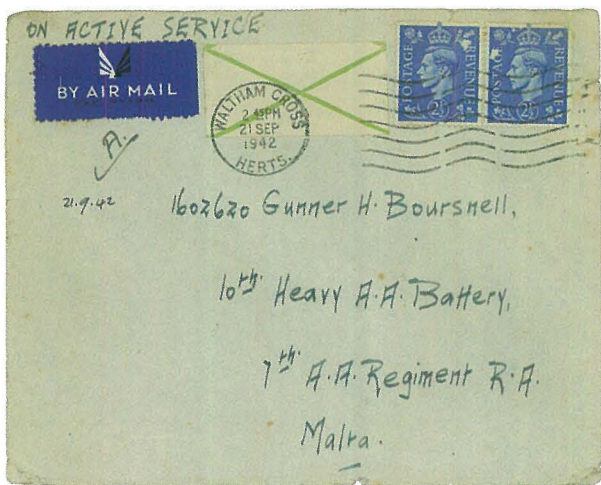 ON ACTIVE SERVICE
BY AIR MAIL
WALTHAM CROSS
2.45PM
21 SEP
1942
HERTS.
POSTAGE REVENUE
2½
POSTAGE REVENUE
2½
A.
21.9.42
1602620 Gunner H. Boursnell,
10th. Heavy A.A. Battery,
7th. A.A. Regiment R.A.
Malta.